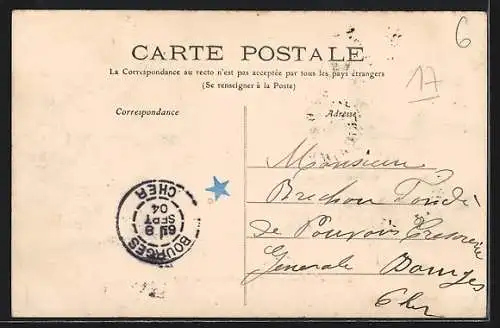 6
17
CARTE POSTALE
La Correspondance au recto n'est pas acceptée par tous les pays étrangers
(Se renseigner à la Poste)
Correspondance
Adresse
Monsieur
Brechon Fondé
de Pouvoirs Trésorerie
Générale Bourges
Cher
BOURGES
8
SEPT
04
CHER